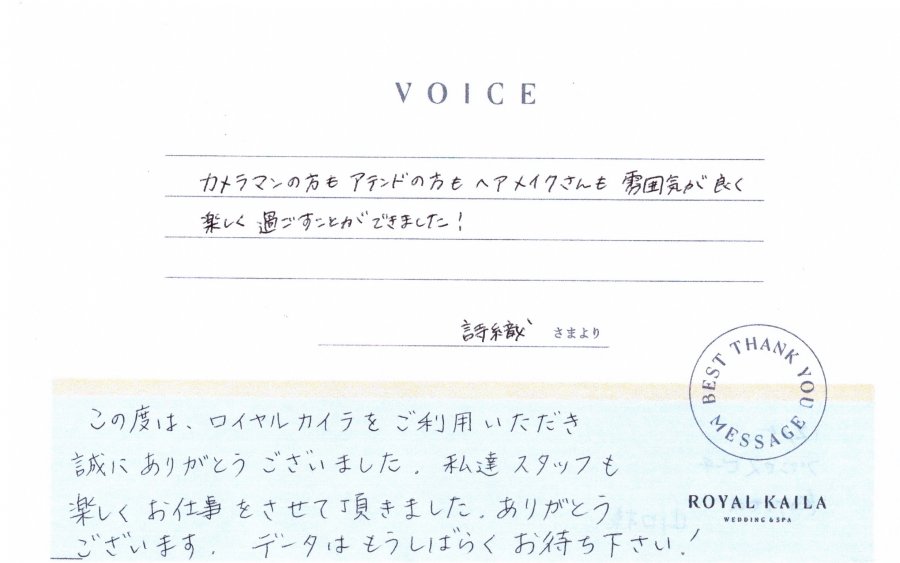 VOICE
カメラマンの方も アテンドの方も ヘアメイクさんも 雰囲気が良く
楽しく 過ごすことができました!
詩織 さまより
BEST THANK YOU MESSAGE
この度は、ロイヤルカイラをご利用いただき
誠に ありがとう ございました. 私達 スタッフも
楽しく お仕事 をさせて頂きました. ありがとう
ございます. データは もうしばらく お待ち下さい!
ROYAL KAILA
WEDDING & SPA